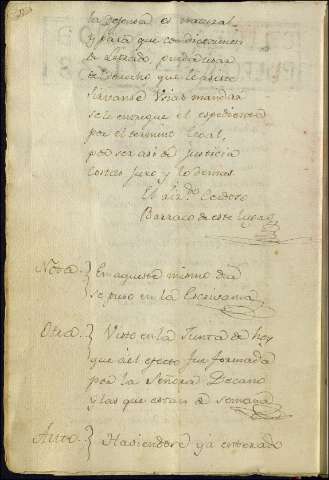 la defensa es natural,
y para que con dictamen
de Letrado pueda usar
del derecho que le asiste
sirvanse Vsias mandar
se le entregue el espediente
por el termino legal,
por ser asi de justicia
costas juro y lo demas
El Liz.do
Barraco de este Lugar
Nota. } En aqueste mismo dia
se puso en la Escrivania
Otra. } Visto en la Junta de hoy
que al efecto fue formada
por la Señora Decano
y las que estan de semana
Auto } Haviendose ya enterado